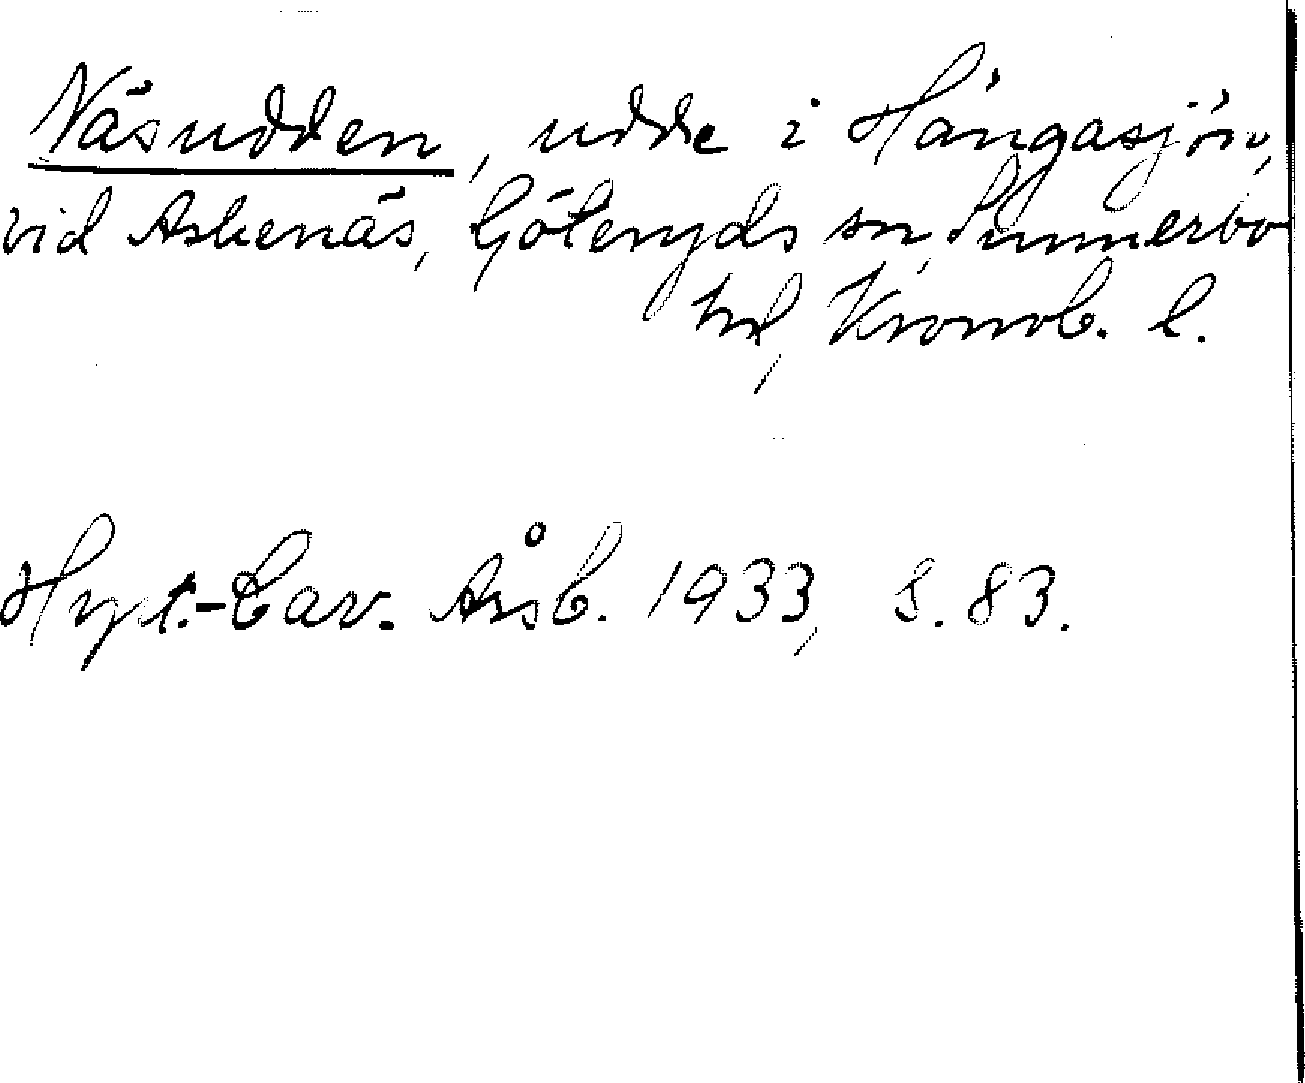 Näsudden, udde i Hängasjön,
vid Askenäs, Göteryds sn, Sunnerbo
hd, Kronob. l.
Hylt.-Cav. Årsb. 1933, s. 83.